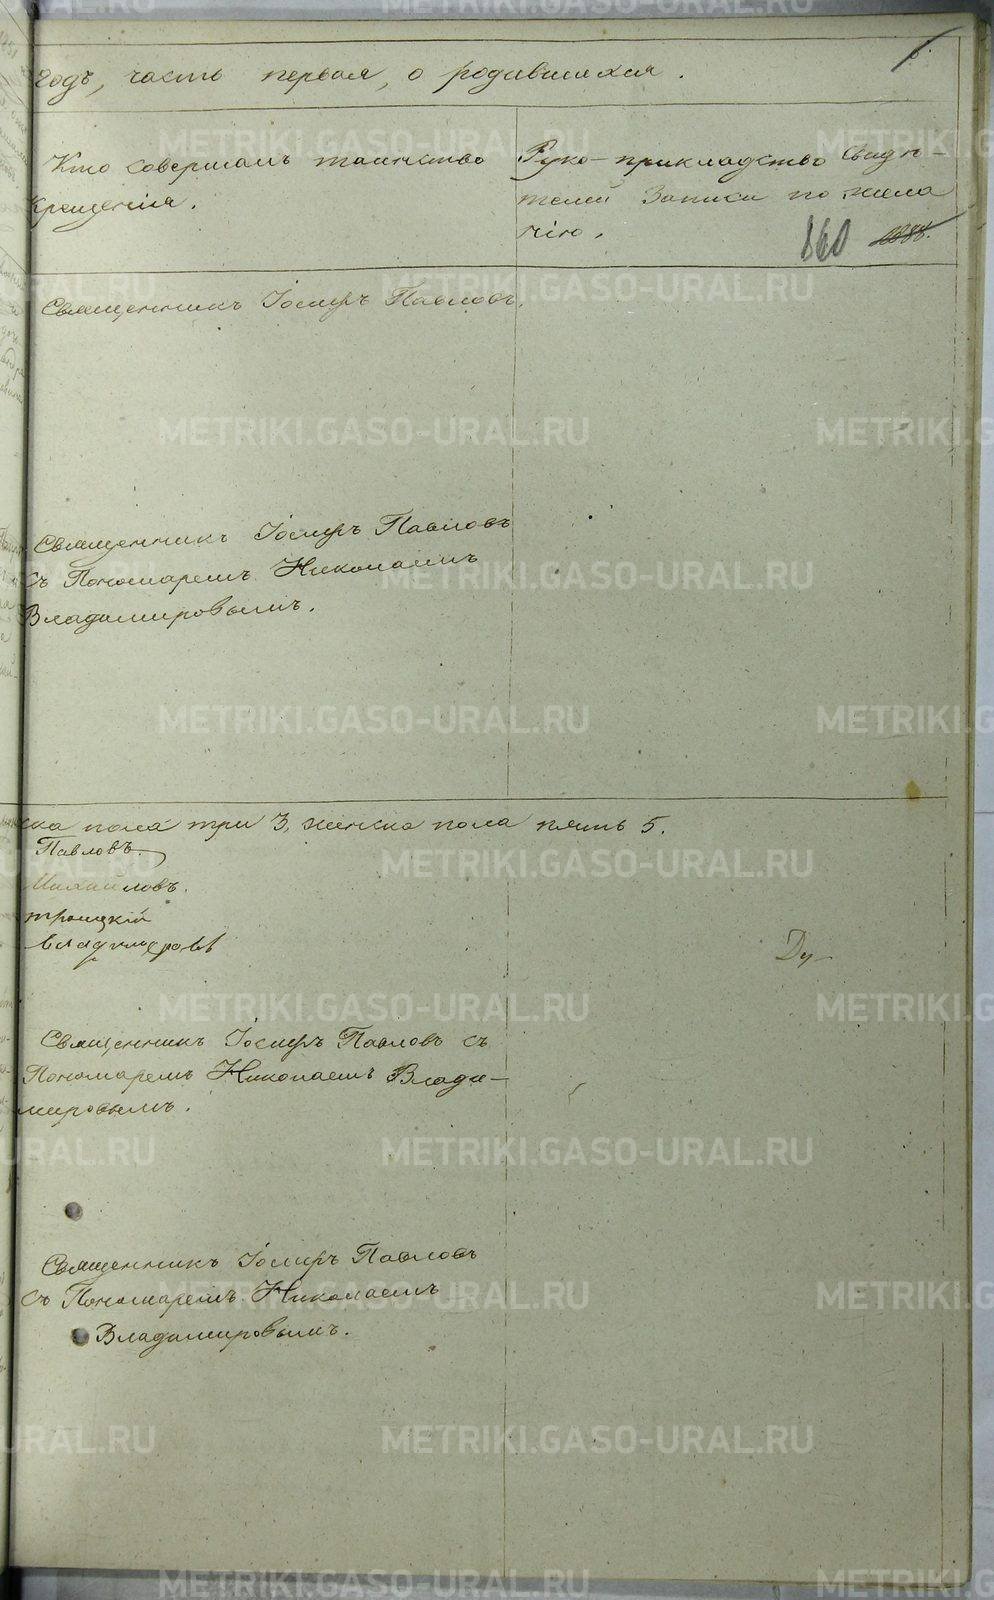 годъ, часть первая, о родившихся.
Кто совершалъ таинство
крещенія.
Руко-прикладство свидѣ-
телей записи по жела
нію.
860
Священникъ Іосифъ Павловъ.
Священникъ Іосифъ Павловъ
съ Пономаремъ Николаемъ
Владимировымъ.
ска пола три 3, женска пола пять 5.
Павловъ.
Михайловъ.
троицкій
владимеровъ
Ду-
Священникъ Іосифъ Павловъ съ
Пономаремъ Николаемъ Влади-
мировымъ.
Священникъ Іосифъ Павловъ
съ Пономаремъ Николаемъ
Владимировымъ.
METRIKI.GASO-URAL.RU